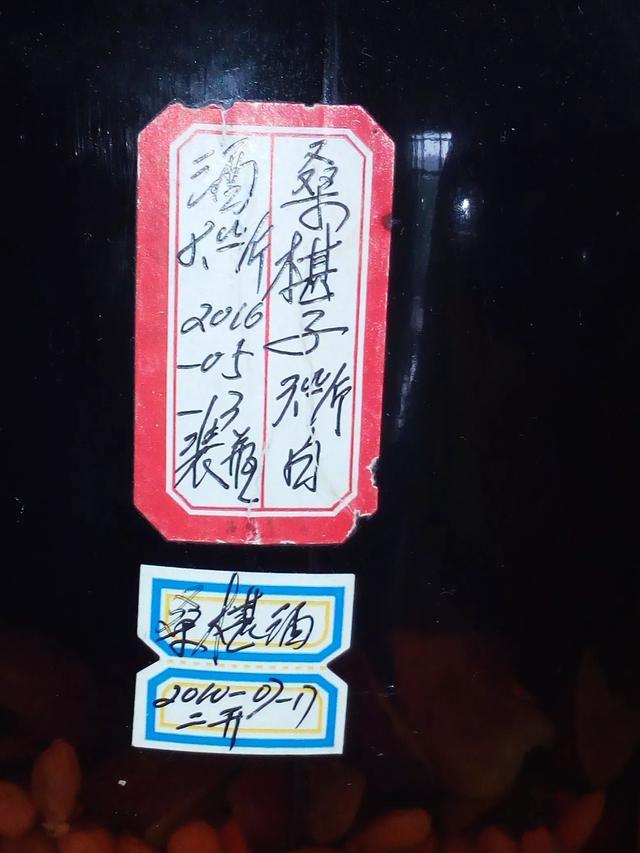 桑椹子 斤 白
酒 斤 2016-05-13 装瓶
桑椹酒
2010-07-17
二开